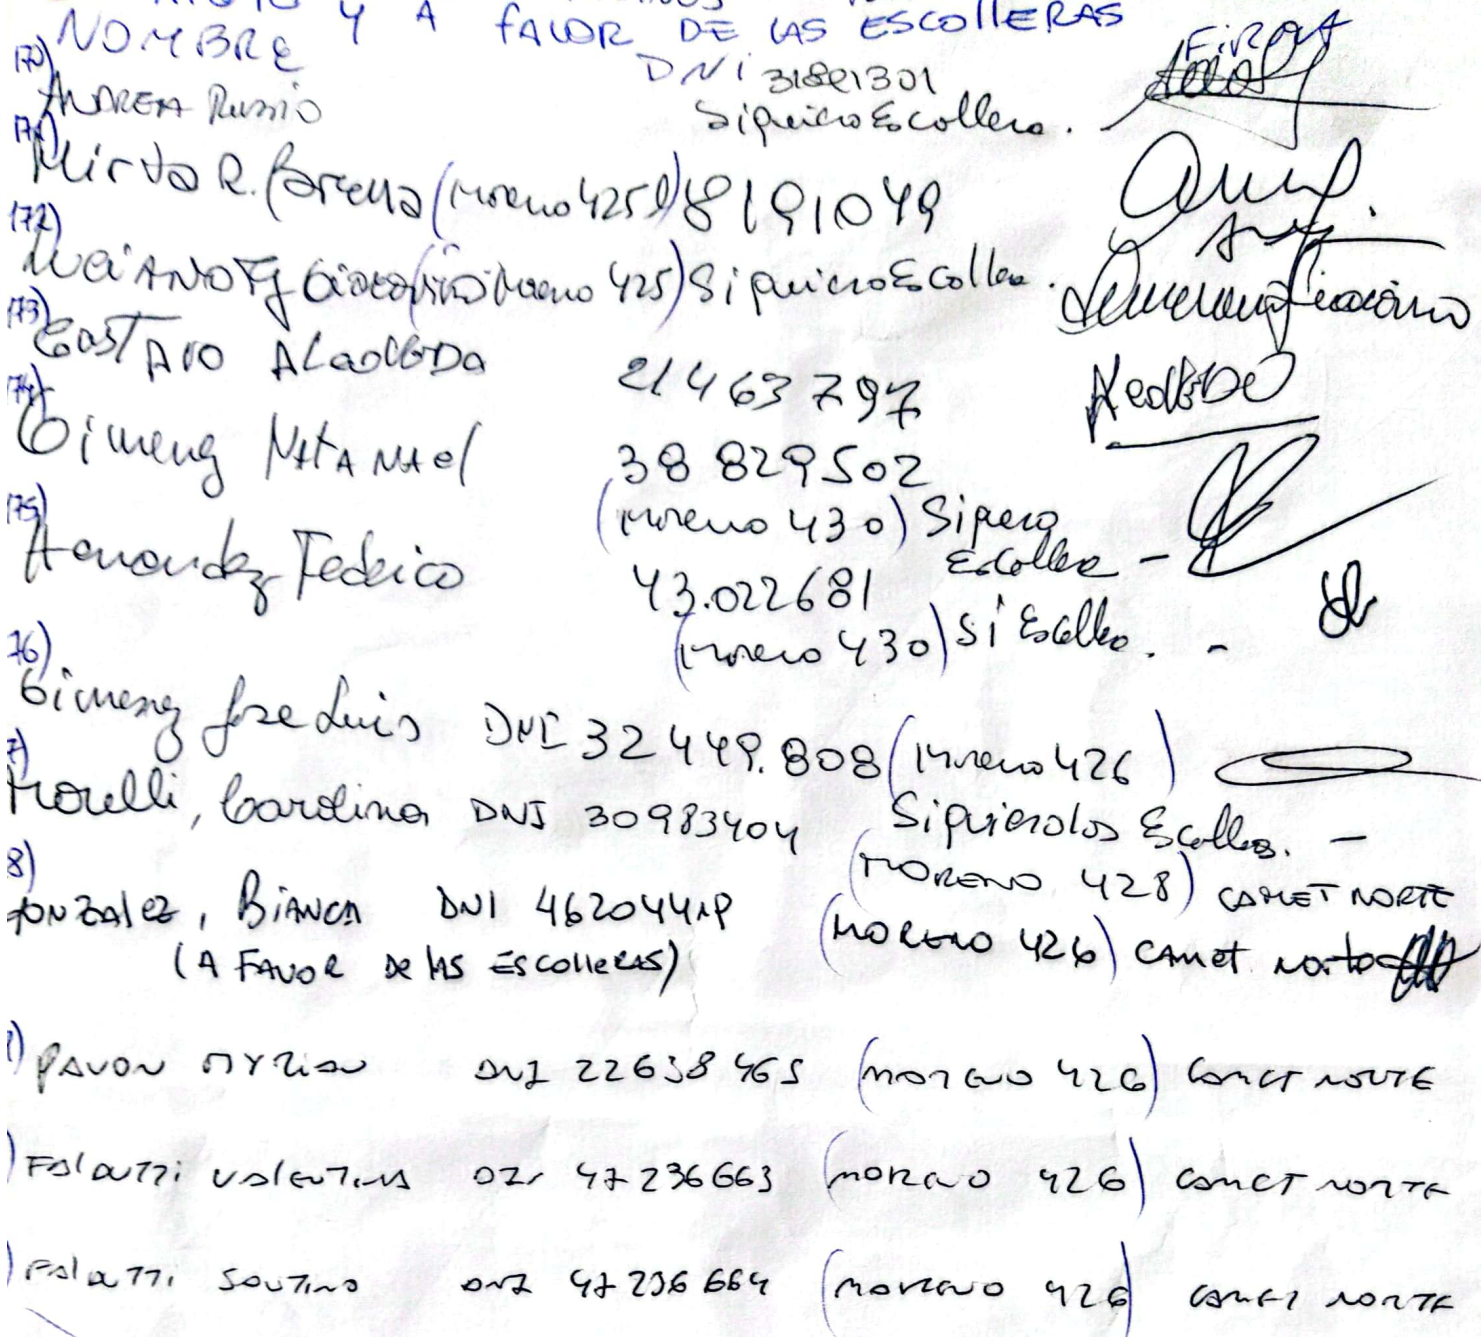 Y A FAVOR DE LAS ESCOLLERAS
NOMBRE DNI FIRMA
170) ANDREA Russio 31821301
Si quiero Escollera.
171) Mirta R. (Moreno 425) 8191049
172) LuciANO (Moreno 425) Si quiero Escollera.
173) GUSTAVO ALBOLEDA 21463797
174) Gimenez NATANAel 38829502
(Moreno 430) Si pero Escollera -
175) Hernandez Federico 43.022681
(Moreno 430) Si Escollera. -
76) Gimenez Jose Luis DNI 32449.808 (Moreno 426)
7) Morelli, Carolina DNI 30983404 Si quiero las Escolleras. -
(MORENO 428) CAMET NORTE
8) GONZALEZ, BIANCA DNI (MORENO 426) CAMET Norte
(A FAVOR De lAS EscolleRAS)
) PAVON MYRIAN DNI 22638465 (MORENO 426) CAMET NORTE
) FALATTI VALENTINA DNI 47236663 (MORENO 426) CAMET NORTE
) FALATTI SANTINO DNI 47236664 (MORENO 426) CAMET NORTE